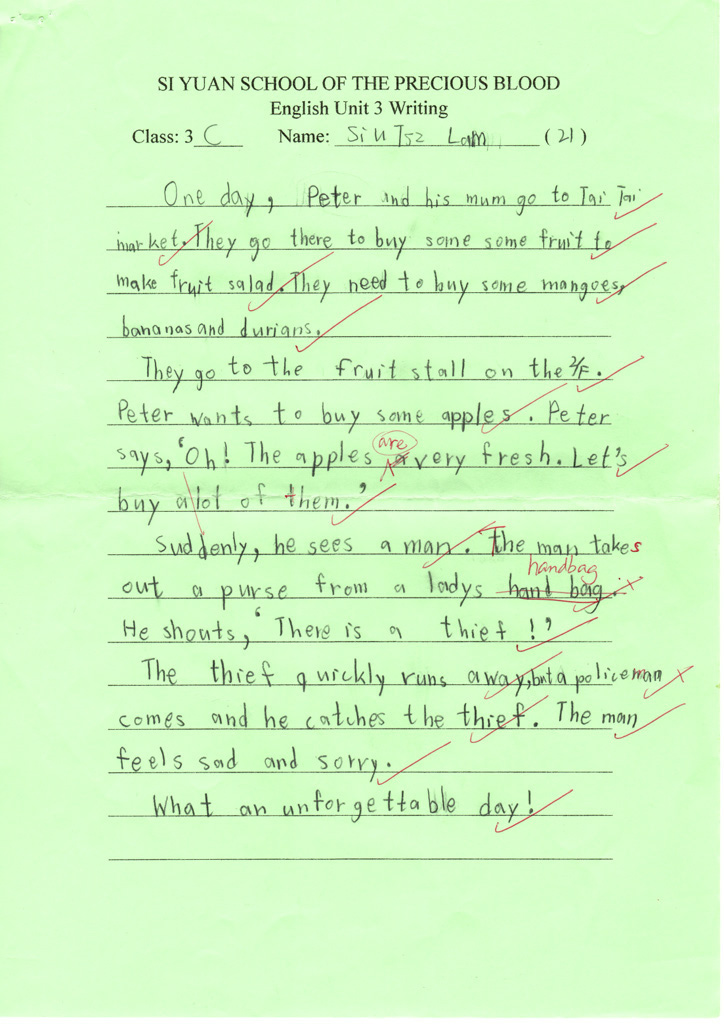 SI YUAN SCHOOL OF THE PRECIOUS BLOOD
English Unit 3 Writing
Class: 3 C Name: Siu Tsz Lam ( 21 )
One day, Peter and his mum go to Tai Tai
market. They go there to buy some some fruit to
make fruit salad. They need to buy some mangoes,
bananas and durians.
They go to the fruit stall on the 2/F.
Peter wants to buy some apples. Peter
are
says, 'Oh! The apples very fresh. Let's
buy alot of them.'
Suddenly, he sees a man. The man takes
handbag
out a purse from a ladys hand bag.
He shouts, 'There is a thief!'
The thief quickly runs away, but a policeman
comes and he catches the thief. The man
feels sad and sorry.
What an unforgettable day!